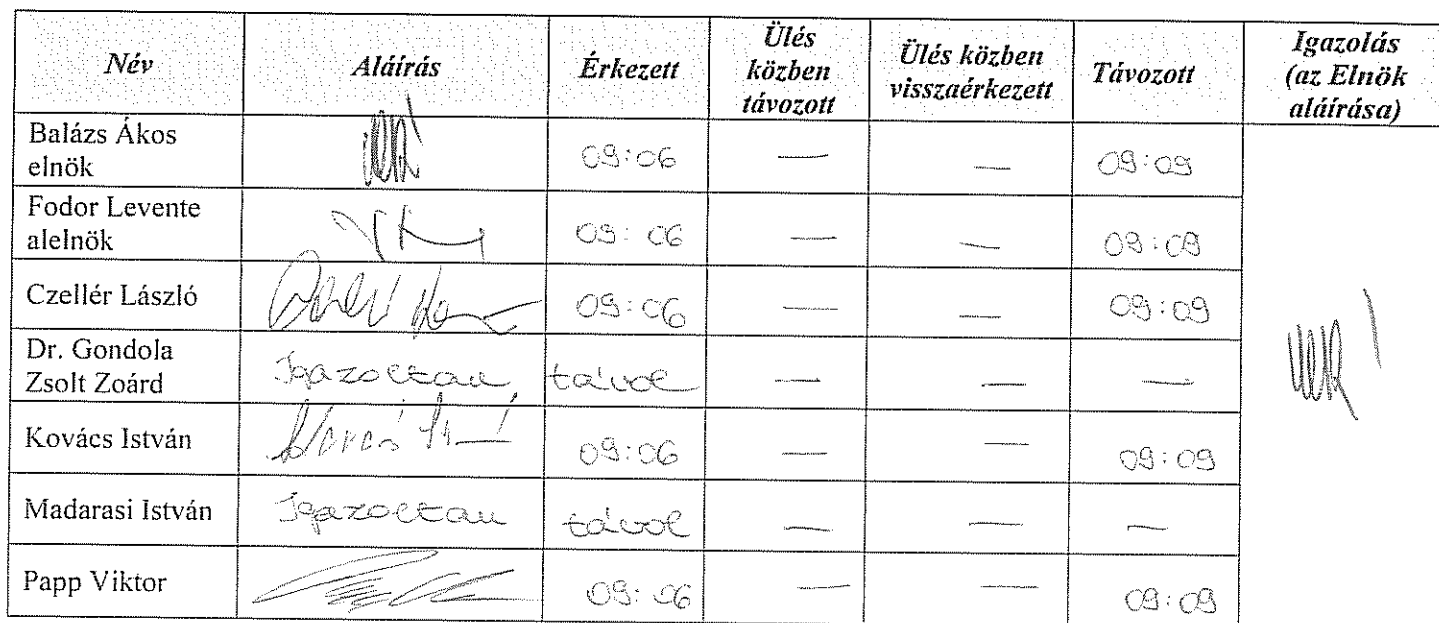 Név Aláírás Érkezett Ülés közben távozott Ülés közben visszaérkezett Távozott Igazolás (az Elnök aláírása)
Balázs Ákos elnök 09:06 — — 09:09
Fodor Levente alelnök 09:06 — — 09:09
Czellér László 09:06 — — 09:09
Dr. Gondola Zsolt Zoárd Igazoltan távol — — —
Kovács István 09:06 — — 09:09
Madarasi István Igazoltan távol — — —
Papp Viktor 09:06 — — 09:09